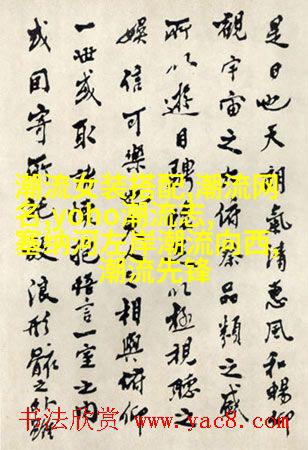 是日也天朗氣清惠風和暢仰
觀宇宙之大俯察品類之盛
所以遊目騁懷足以極視聽之
娛信可樂也夫人之相與俯仰
一世或取諸懷抱悟言一室之內
或因寄所託放浪形骸之外雖
潮流女装搭配,潮流网
名,yoho潮流志,
塞纳河左岸潮流向西,
潮流先锋
书法欣赏 www.yac8.com